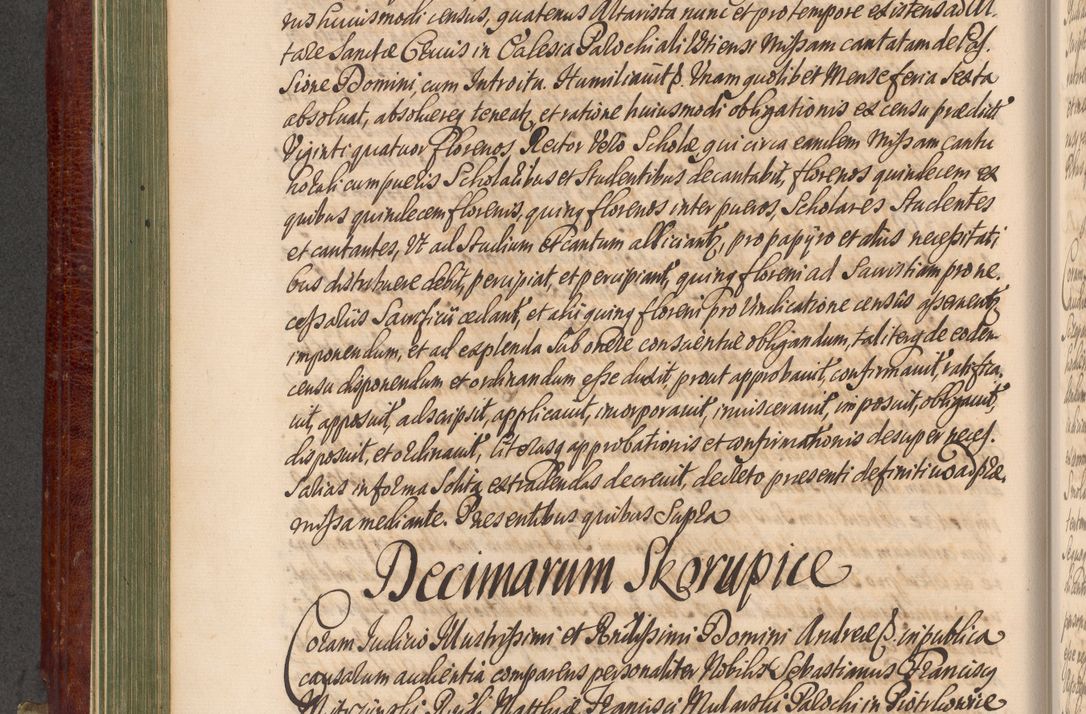 rus huiusmodi census, quatenus Altarista nunc et pro tempore existens ad Al-
tare Sanctæ Crucis in Ecclesia Parochiali Vstiensi Missam cantatam de Pas-
sione Domini, cum Introitu Humiliauit p. Vnam quolibet Mense feria Sexta
absoluat, absoluereq teneatr, et ratione huiusmodi obligationis ex censu prædict
Viginti quatuor florenos Rector Vero Scholæ qui circa eandem Missam cantu
horali cum pueris Scholaribus et Studentibus decantabit, florenos quindecem ex
quibus quindecem florenis, quinq florenos inter pueros, Scholares Studentes
et cantantes, Vt ad Studium et cantum alliciantr, pro papÿro et alÿs necessitati
bus distribuere debit, percipiat, et percipiant, quinq floreni ad Sacristiam pro ne-
cessarÿs Sacrificÿ cedant, et alÿ quinq floreni pro Vindicatione censûs
imponendum, et ad explenda sub onere conscientiæ obligandum, taliterq de eodem
censu disponendum et ordinandum esse duxit, prout approbauit, confirmauit, ratifica-
uit, apposuit, adscripsit, applicauit, incorporauit, inuiscerauit, imposuit, obligauit,
disposuit, et ordinauit, literasq approbationis et confirmationis desuper neces-
sarias in forma Solita extradendas decreuit, decreto præsenti definitiuo ad præ-
missa mediante. Presentibus quibus Supra
Decimarum Skorupice
Coram Iudicio Illustrissimi et Rndissimi Domini Andreæ p. in publica
causarum audientia comparens personaliter Nobilis Sebastianus Francisq
Rndi Matthiæ Francisci Mularski Parochi in Piotrkowice